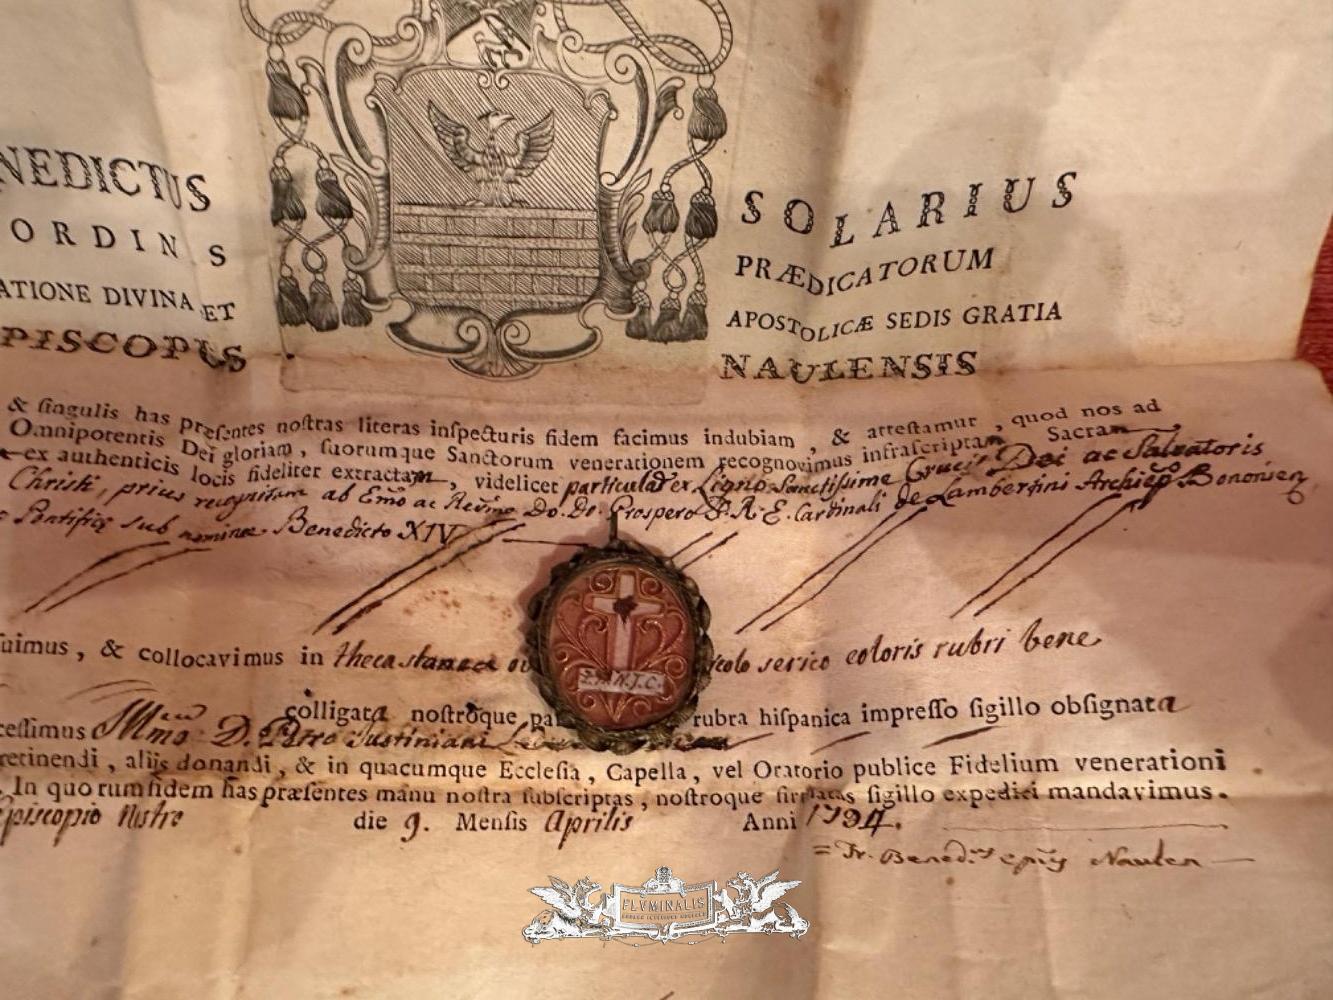 NEDICTUS SOLARIUS
ORDINIS PRÆDICATORUM
ATIONE DIVINA, ET APOSTOLICÆ SEDIS GRATIA
PISCOPUS NAULENSIS
& singulis has præsentes nostras literas inspecturis fidem facimus indubiam, & attestamur, quod nos ad
Omnipotentis Dei gloriam, suorumque Sanctorum venerationem recognovimus infrascriptam Sacram
ex authenticis locis fideliter extractam, videlicet particulas ex Ligno Sanctissime Crucis Dei ac Salvatoris
Christi, prius recognitam ab Emo ac Revmo Do. Do. Prospero S. R. E. Cardinali de Lambertini Archiepo Bononien
Pontifice sub nomine Benedicto XIV
uimus, & collocavimus in theca stannea serico coloris rubri bene
colligata nostroque rubra hispanica impresso sigillo obsignata
cessimus Illmo D. Petro Justiniani
retinendi, aliis donandi, & in quacumque Ecclesia, Capella, vel Oratorio publice Fidelium venerationi
In quorum fidem has præsentes manu nostra subscriptas, nostroque sigillo expediri mandavimus.
piscopio Nostro die 9. Mensis Aprilis Anni 1794.
= Fr. Bened.us epus Naulen
L.S.N.J.C.
FLUMINALIS